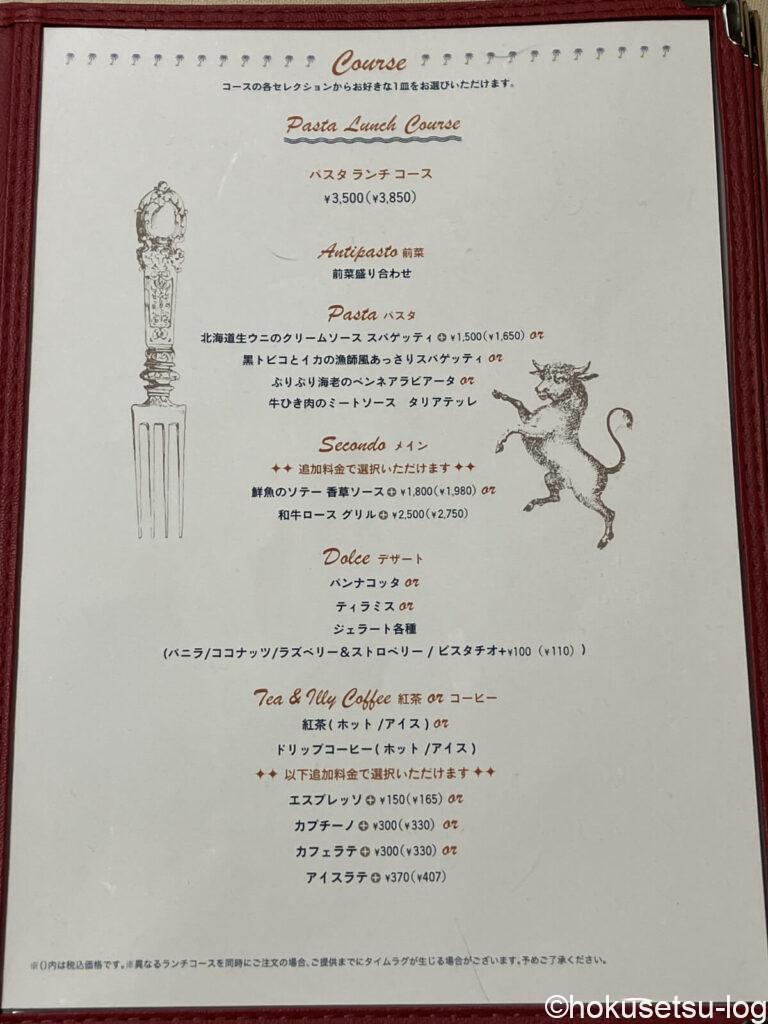 Course
コースの各セレクションからお好きな1皿をお選びいただけます。
Pasta Lunch Course
パスタ ランチ コース
¥3,500(¥3,850)
Antipasto 前菜
前菜盛り合わせ
Pasta パスタ
北海道生ウニのクリームソース スパゲッティ⊕¥1,500(¥1,650) or
黒トビコとイカの漁師風あっさりスパゲッティ or
ぷりぷり海老のペンネアラビアータ or
牛ひき肉のミートソース タリアテッレ
Secondo メイン
✦✦ 追加料金で選択いただけます ✦✦
鮮魚のソテー 香草ソース⊕¥1,800(¥1,980) or
和牛ロース グリル⊕¥2,500(¥2,750)
Dolce デザート
パンナコッタ or
ティラミス or
ジェラート各種
(バニラ/ココナッツ/ラズベリー&ストロベリー / ピスタチオ+¥100 (¥110) )
Tea & Illy Coffee 紅茶 or コーヒー
紅茶( ホット /アイス ) or
ドリップコーヒー( ホット /アイス )
✦✦ 以下追加料金で選択いただけます ✦✦
エスプレッソ⊕¥150(¥165) or
カプチーノ⊕¥300(¥330) or
カフェラテ⊕¥300(¥330) or
アイスラテ⊕¥370(¥407)
※()内は税込価格です。※異なるランチコースを同時にご注文の場合、ご提供までにタイムラグが生じる場合がございます。予めご了承ください。
©hokusetsu-log